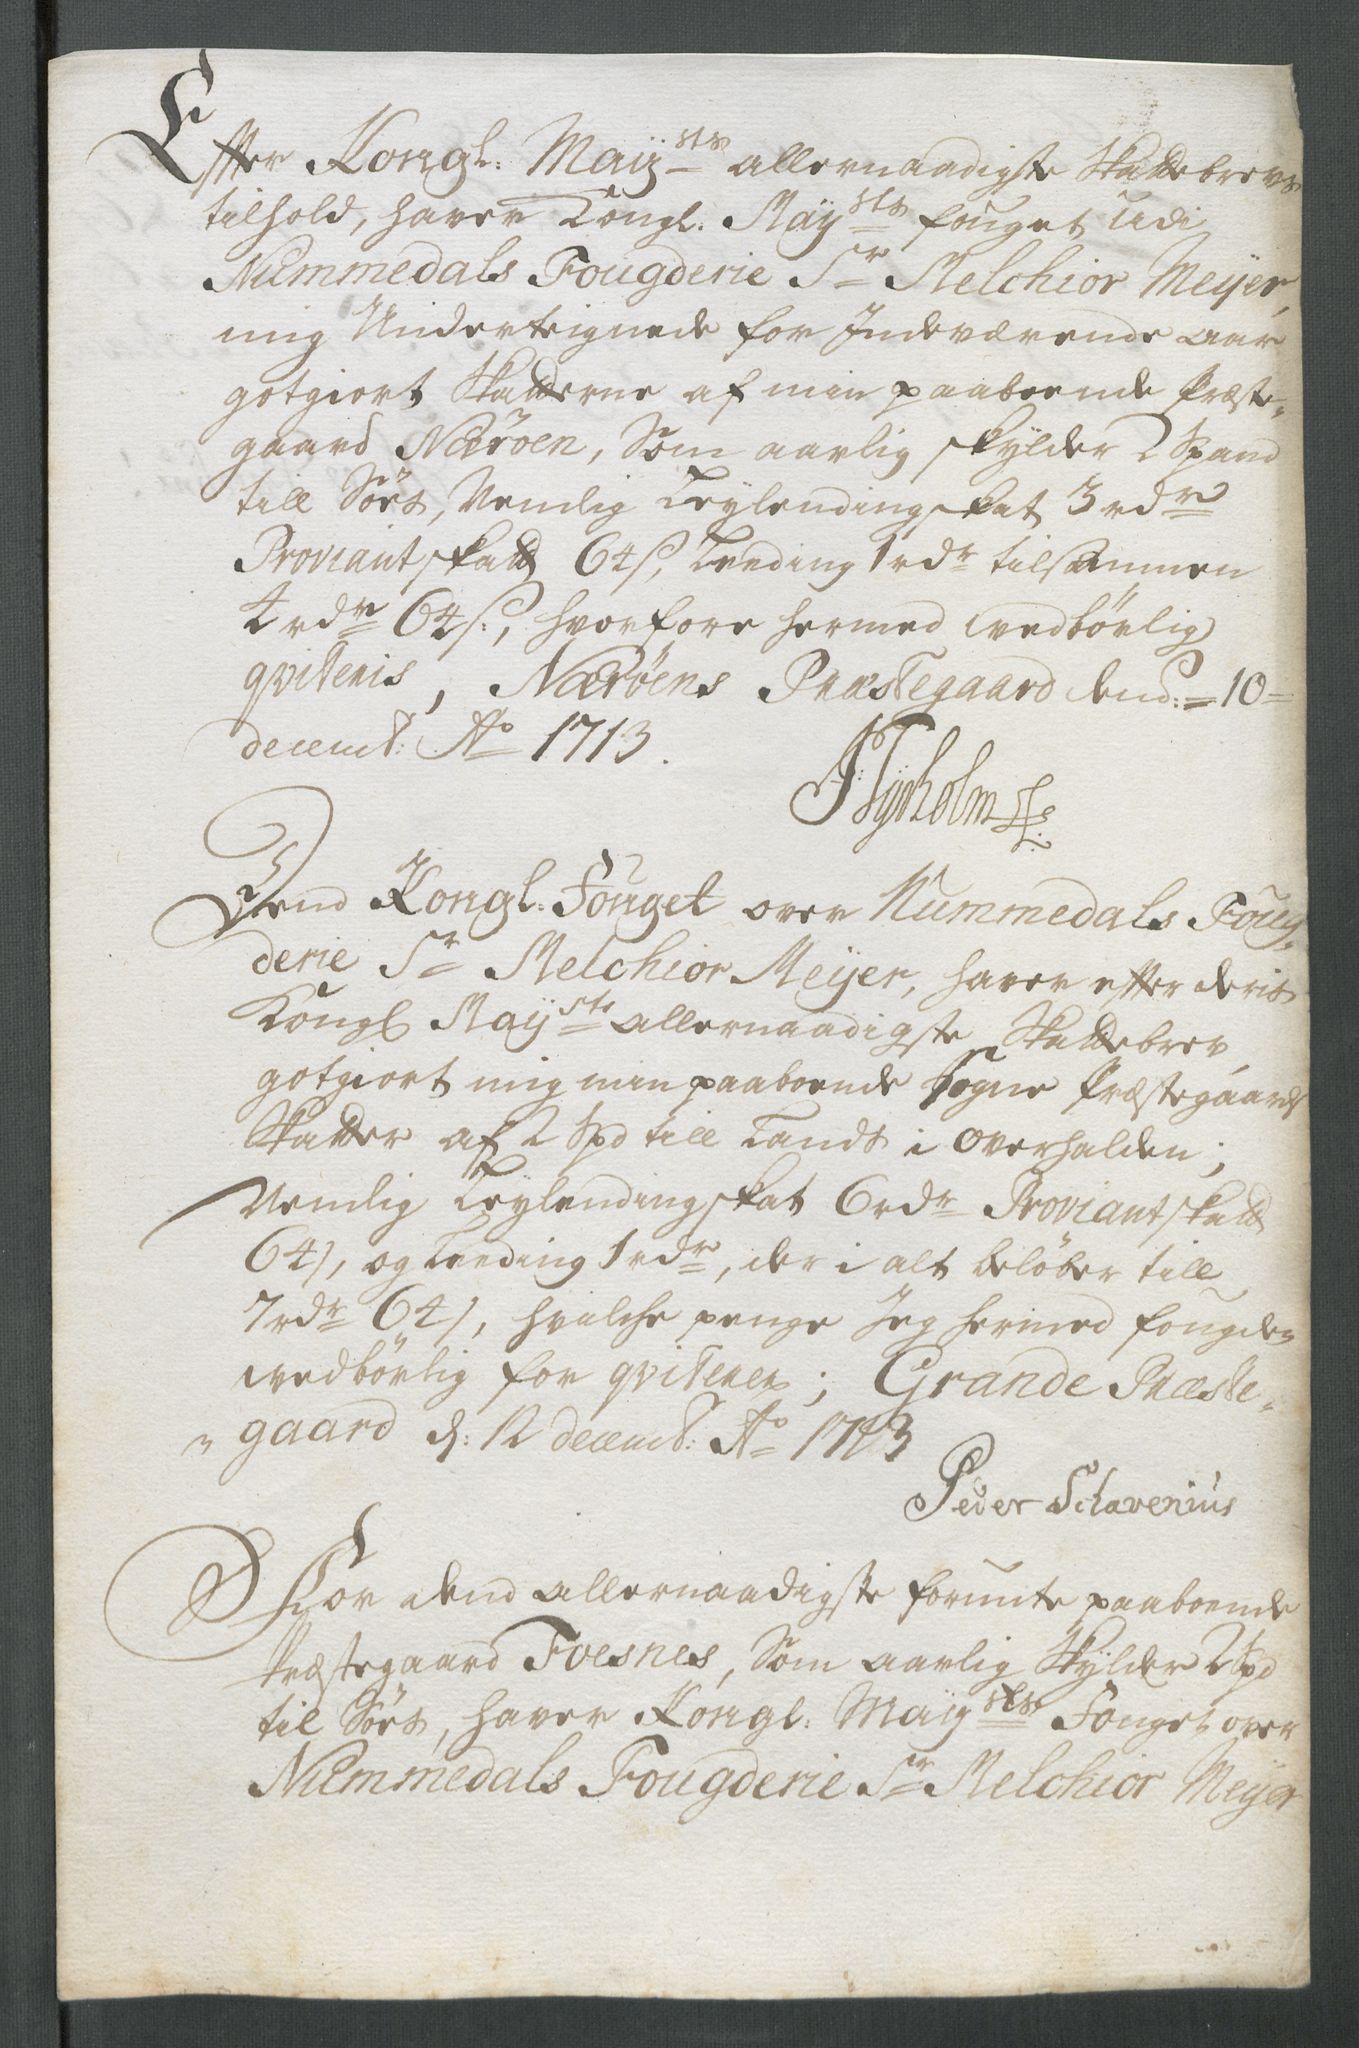 Effter Kongl: Maÿ:sts allernaadigste Skattebrevs
tilhold, haver Kongl: Maÿsts fouget udi
Nummedals Fougderie Sr Melchior Meÿer,
mig Underteignede for Indeværende aar
gotgiort Skatterne af min paaboende Præste-
gaard Næröen, Som aarlig skylder 2 Spand
till Söes, Nemlig Leylendingskat 3 rdr
Proviantskatt 64 s, Leeding 1 rdr tilsammen
4 rdr 64 s:, hvorfore hermed vedbörlig
qviteris, Næröens Præstegaard dend: = 10 =
decemb: Ao 1713.
Dend Kongl: Fouget over Nummedals Foug-
derie Sr Melchior Meÿer, haver effter deris
Kongl Maÿsts allernaadigste Skattebrev
gotgiort mig min paaboende Sogne Præstegaards
Skatter af 2 Spd till Lands i Overhalden;
Nemlig Leylendingskat 6 rdr Proviantskatt
64 s, og Leeding 1 rdr, der i alt belöber till
7 rdr 64 s, hvilche penge Jeg hermed fougden
vedbörlig for qviterer; Grande Præste-
gaard d: 12 decemb: Ao 1713
Peder Schavenius
For dend allernaadigste forunte paaboende
Præstegaard Foesnes, Som aarlig Skylder 2 Spd
til Söes, haver Kongl: Maÿsts Fouget over
Nummedals Fougderie Sr Melchior Meÿer